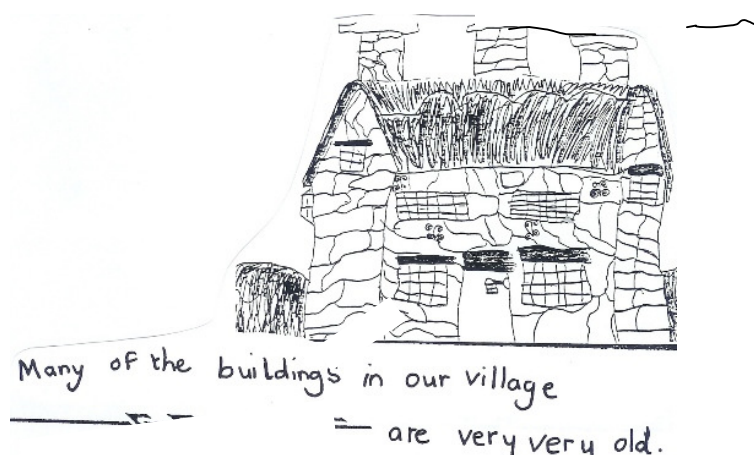 Many of the buildings in our village
are very very old.